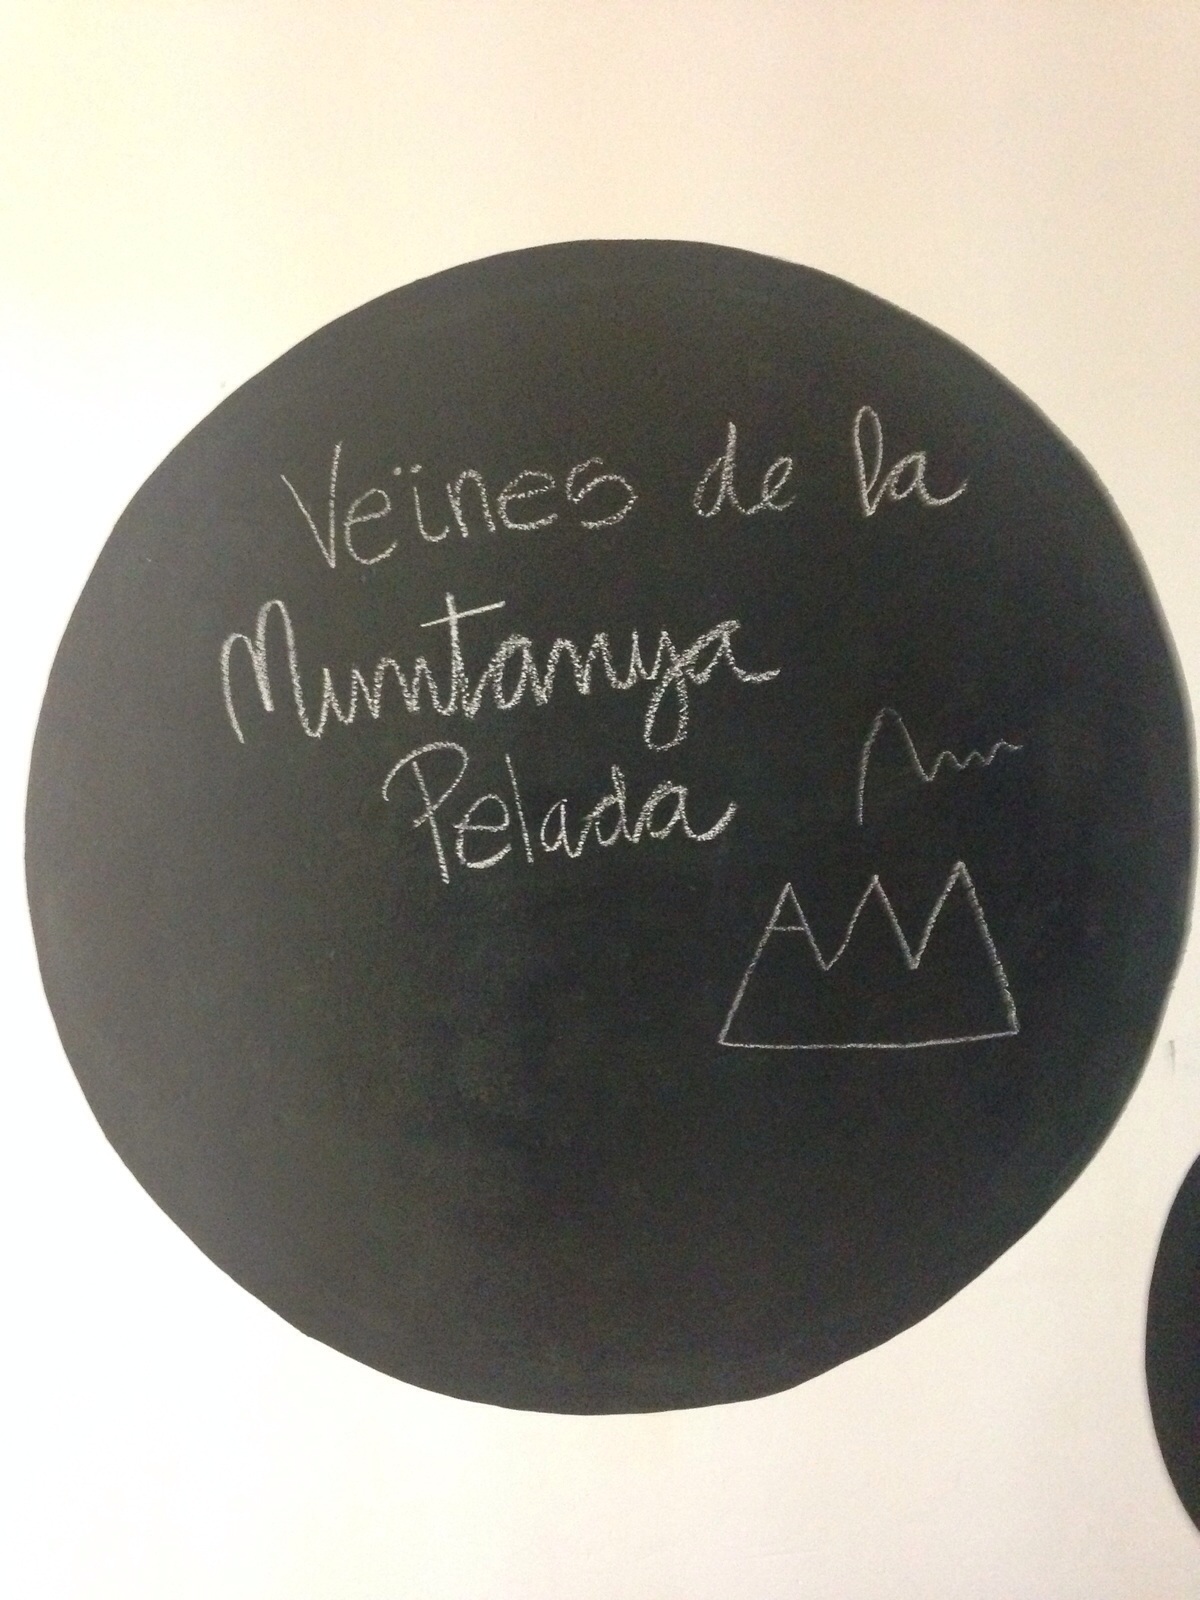 Veïnes de la
Muntanya
Pelada